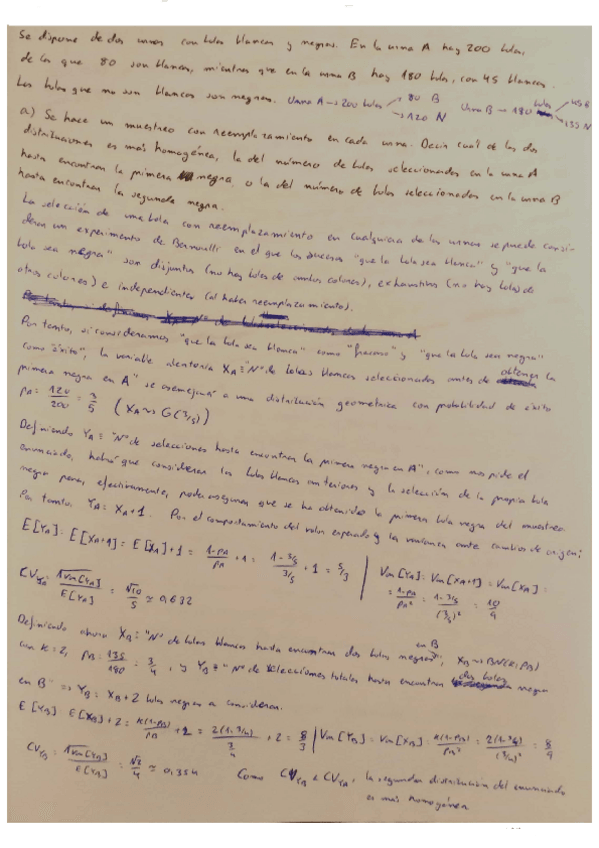 Se dispone de dos urnas con bolas blancas y negras. En la urna A hay 200 bolas,
de las que 80 son blancas, mientras que en la urna B hay 180 bolas, con 45 blancas.
Las bolas que no son blancas son negras. Urna A → 200 bolas 80 B 120 N Urna B → 180 bolas 45 B 135 N
a) Se hace un muestreo con reemplazamiento en cada urna. Decir cuál de las dos
distribuciones es más homogénea, la del número de bolas seleccionadas en la urna A
hasta encontrar la primera negra, o la del número de bolas seleccionadas en la urna B
hasta encontrar la segunda negra.
La selección de una bola con reemplazamiento en cualquiera de las urnas se puede consi-
derar un experimento de Bernoulli en el que los sucesos "que la bola sea blanca" y "que la
bola sea negra" son disjuntos (no hay bolas de ambos colores), exhaustivos (no hay bolas de
otros colores) e independientes (al haber reemplazamiento).
Por tanto, si consideramos "que la bola sea blanca" como "fracaso" y "que la bola sea negra"
como "éxito", la variable aleatoria XA = "Nº de bolas blancas seleccionadas antes de obtener la
primera negra en A" se asemejará a una distribución geométrica con probabilidad de éxito
pA = 120/200 = 3/5 (XA ~ G(3/5))
Definiendo YA = "Nº de selecciones hasta encontrar la primera negra en A", como nos pide el
enunciado, habrá que considerar las bolas blancas anteriores y la selección de la propia bola
negra para, efectivamente, poder asegurar que se ha obtenido la primera bola negra del muestreo.
Por tanto, YA = XA + 1. Por el comportamiento del valor esperado y la varianza ante cambios de origen:
E[YA] = E[XA+1] = E[XA]+1 = (1-pA)/pA + 1 = (1-3/5)/(3/5) + 1 = 5/3 | Var[YA] = Var[XA+1] = Var[XA] =
= (1-pA)/pA² = (1-3/5)/(3/5)² = 10/9
CVYA = √Var[YA]/E[YA] = √10/5 ≈ 0,632
Definiendo ahora XB = "Nº de bolas blancas hasta encontrar dos bolas negras en B", XB ~ BN(k, pB)
con k = 2, pB = 135/180 = 3/4, y YB = "Nº de selecciones totales hasta encontrar dos bolas negras
en B" ⇒ YB = XB + 2 bolas negras a considerar.
E[YB] = E[XB] + 2 = k(1-pB)/pB + 2 = 2(1-3/4)/(3/4) + 2 = 8/3 | Var[YB] = Var[XB] = k(1-pB)/pB² = 2(1-3/4)/(3/4)² = 8/9
CVYB = √Var[YB]/E[YB] = √2/4 ≈ 0,354 Como CVYB < CVYA, la segunda distribución del enunciado
es más homogénea.